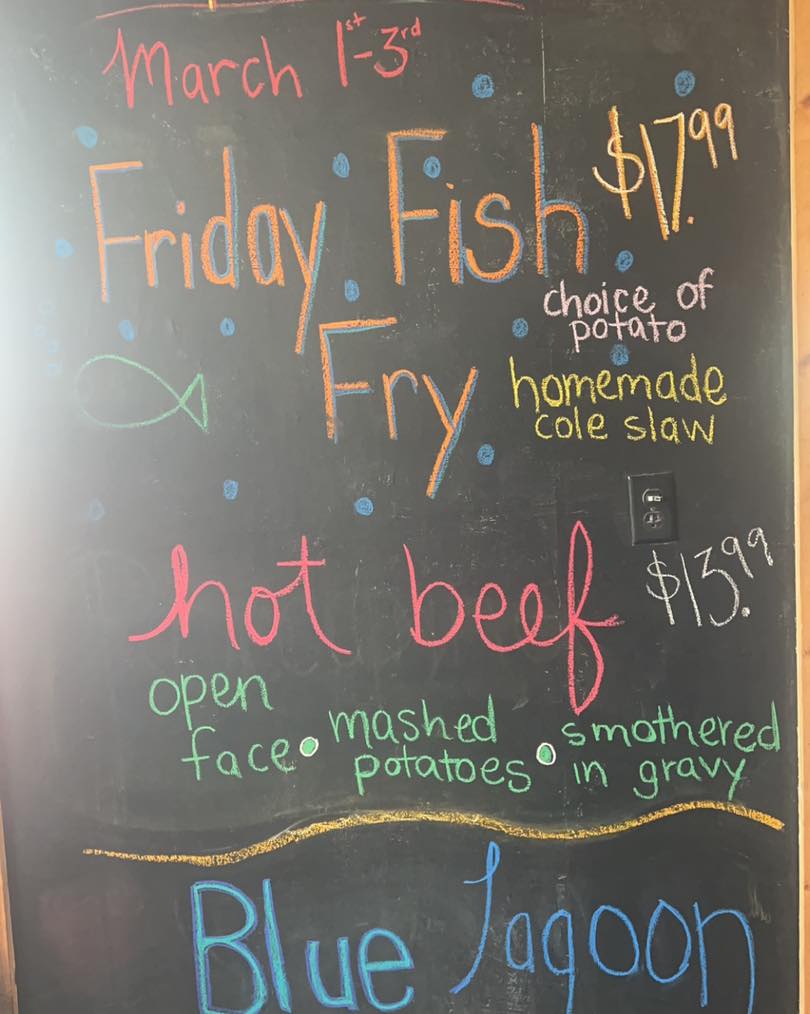 March 1st-3rd
Friday Fish
$17.99
choice of
potato
Fry
homemade
cole slaw
hot beef
$13.99
open
face • mashed
potatoes • smothered
in gravy
Blue Lagoon